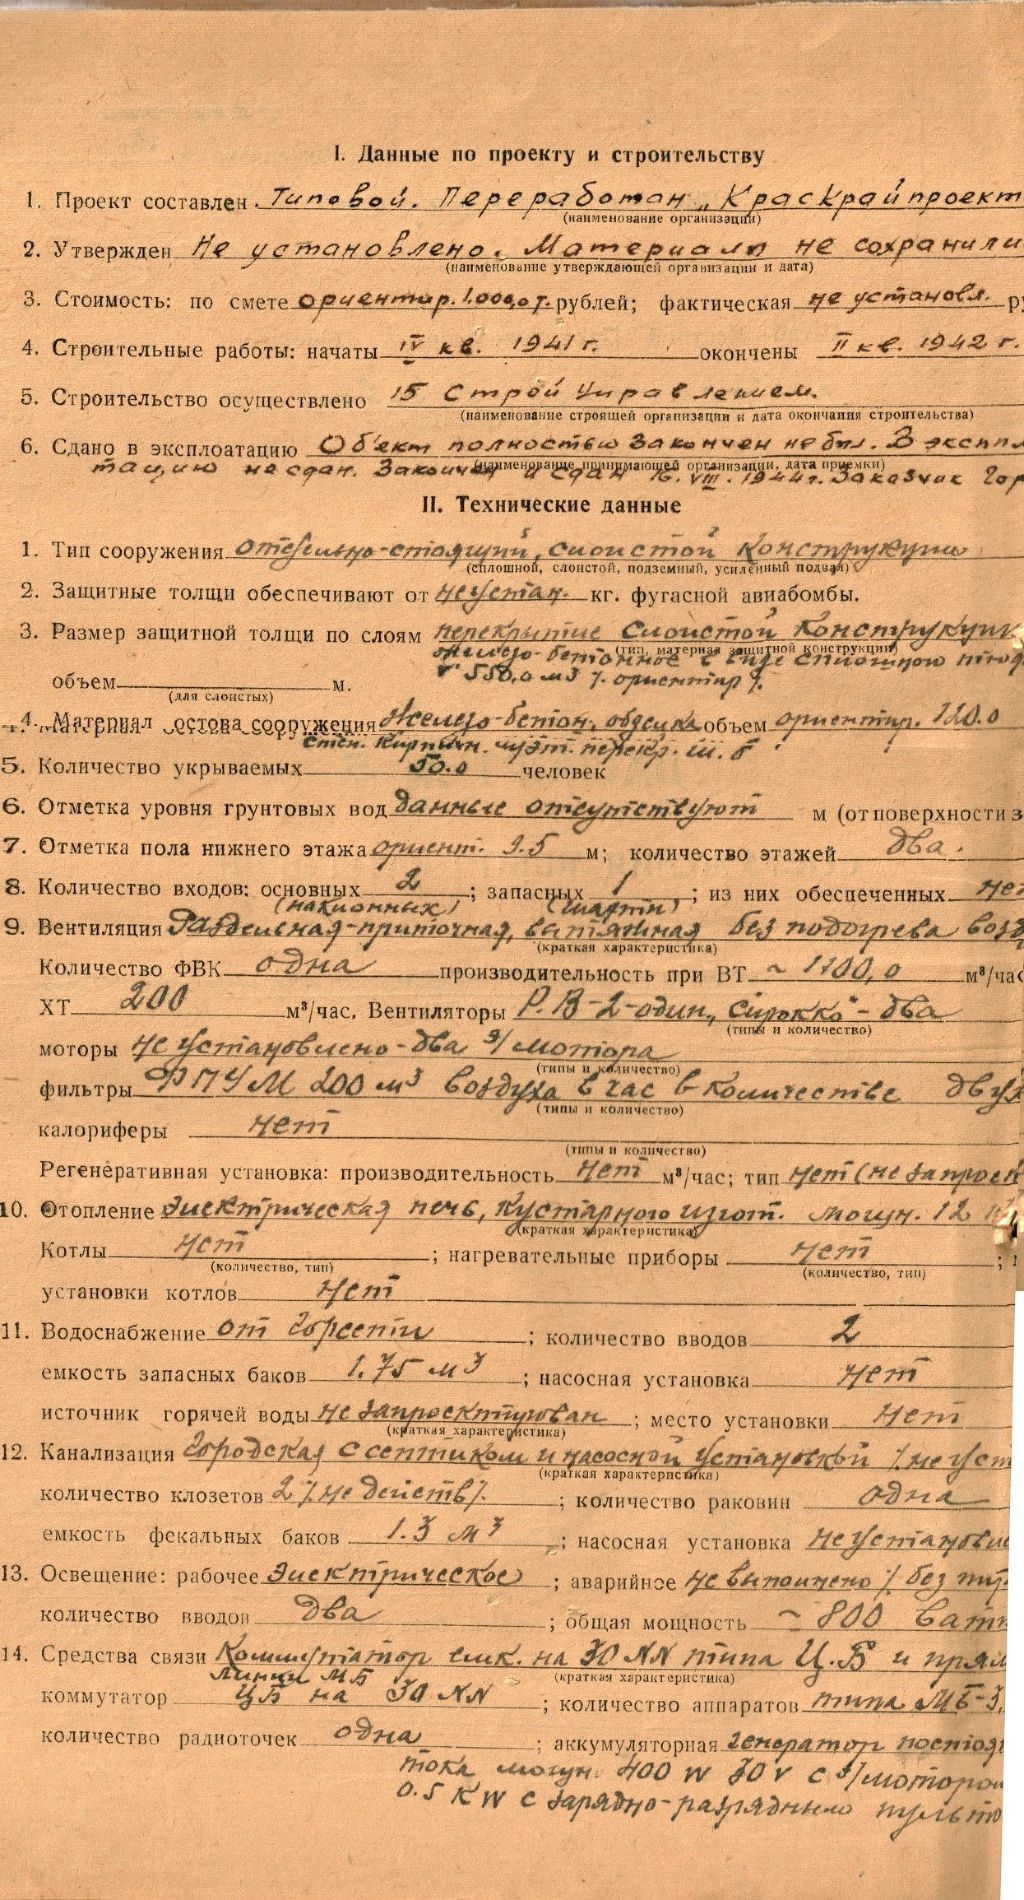 I. Данные по проекту и строительству
1. Проект составлен Типовой. Переработан „Краскрайпроект
(наименование организации)
2. Утвержден Не установлено. Материалы не сохранили
(наименование утверждающей организации и дата)
3. Стоимость: по смете ориентир. 1.000,0 т. рублей; фактическая не установл. ру
4. Строительные работы: начаты IV кв. 1941 г. окончены II кв. 1942 г.
5. Строительство осуществлено 15 Строй Управлением.
(наименование строящей организации и дата окончания строительства)
6. Сдано в эксплоатацию Объект полностью закончен не был. В экспл
(наименование принимающей организации, дата приемки)
тацию не сдан. Закончен и сдан 16.VIII.1944 г. Заказчик Гор
II. Технические данные
1. Тип сооружения отдельно-стоящий, слоистой конструкции
(сплошной, слоистой, подземный, усиленный подвал)
2. Защитные толщи обеспечивают от неустан. кг. фугасной авиабомбы.
3. Размер защитной толщи по слоям перекрытие слоистой конструкции
(тип, материал защитной конструкции)
железо-бетонное в виде сплошного
V 550,0 м3 /. ориентир /.
объем м.
(для слоистых)
4. Материал остова сооружения Железо-бетон, обделка объем ориентир. 120.0
стен. кирпичн. перекр. ж. б
5. Количество укрываемых 50.0 человек
6. Отметка уровня грунтовых вод данные отсутствуют м (от поверхности з
7. Отметка пола нижнего этажа ориент. 9.5 м; количество этажей два.
8. Количество входов: основных 2 ; запасных 1 ; из них обеспеченных нет
(наклонных) (шахтн)
9. Вентиляция Раздельная-приточная, вытяжная без подогрева возд
(краткая характеристика)
Количество ФВК одна производительность при ВТ ~ 1100,0 м³/час
ХТ 200 м³/час. Вентиляторы Р.В-2-один, „Сирокко" - два
(типы и количество)
моторы Не установлено - два э/мотора
(типы и количество)
фильтры ФПУМ 200 м3 воздуха в час в количестве двух
(типы и количество)
калориферы нет
(типы и количество)
Регенеративная установка: производительность нет м³/час; тип нет (не запроек
10. Отопление Электрическая печь, кустарного изгот. мощн. 12
(краткая характеристика)
Котлы нет ; нагревательные приборы нет ;
(количество, тип) (количество, тип)
установки котлов нет
11. Водоснабжение от Горсети ; количество вводов 2
емкость запасных баков 1.75 м3 ; насосная установка нет
источник горячей воды не запроектирован ; место установки нет
(краткая характеристика)
12. Канализация Городская с септиком и насосной установкой /не уст
(краткая характеристика)
количество клозетов 2 /не действ/. ; количество раковин одна
емкость фекальных баков 1.3 м3 ; насосная установка не установле
13. Освещение: рабочее Электрическое ; аварийное не выполнено /без
количество вводов два ; общая мощность ~ 800 ватт
14. Средства связи Коммутатор емк. на 30 NN типа Ц.Б и прям
линии МБ (краткая характеристика)
коммутатор ЦБ на 30 NN ; количество аппаратов типа МБ-3,
количество радиоточек одна ; аккумуляторная генератор постоян
тока мощн. 400 W 30 V с э/мотором
0.5 KW с зарядно-разрядным пульто